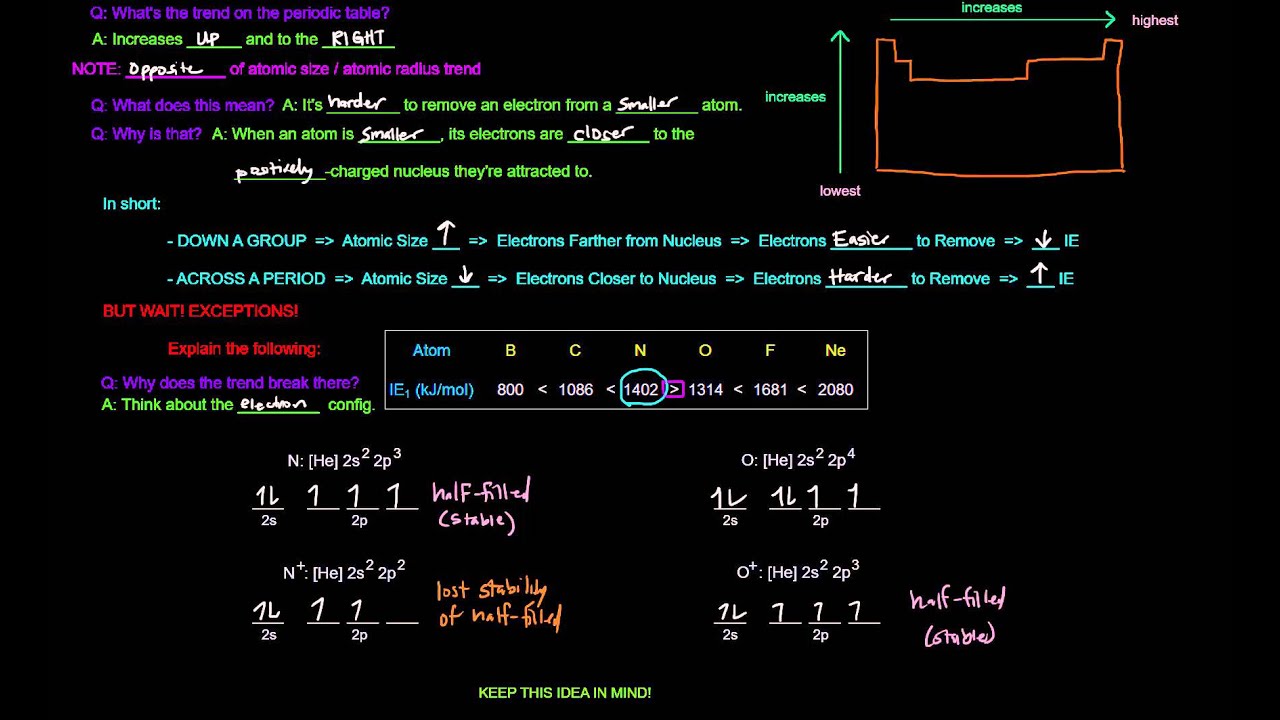 Q: What's the trend on the periodic table?
increases
highest
A: Increases UP and to the RIGHT
NOTE: Opposite of atomic size / atomic radius trend
increases
Q: What does this mean? A: It's harder to remove an electron from a smaller atom.
Q: Why is that? A: When an atom is smaller, its electrons are closer to the
positively-charged nucleus they're attracted to.
lowest
In short:
- DOWN A GROUP => Atomic Size ↑ => Electrons Farther from Nucleus => Electrons Easier to Remove => ↓ IE
- ACROSS A PERIOD => Atomic Size ↓ => Electrons Closer to Nucleus => Electrons Harder to Remove => ↑ IE
BUT WAIT! EXCEPTIONS!
Explain the following:
Atom B C N O F Ne
Q: Why does the trend break there?
IE₁ (kJ/mol) 800 < 1086 < 1402 > 1314 < 1681 < 2080
A: Think about the electron config.
N: [He] 2s² 2p³
O: [He] 2s² 2p⁴
1L 1 1 1 half-filled
(stable)
2s 2p
1L 1L 1 1
2s 2p
N⁺: [He] 2s² 2p²
O⁺: [He] 2s² 2p³
1L 1 1 lost stability
of half-filled
2s 2p
1L 1 1 1 half-filled
(stable)
2s 2p
KEEP THIS IDEA IN MIND!